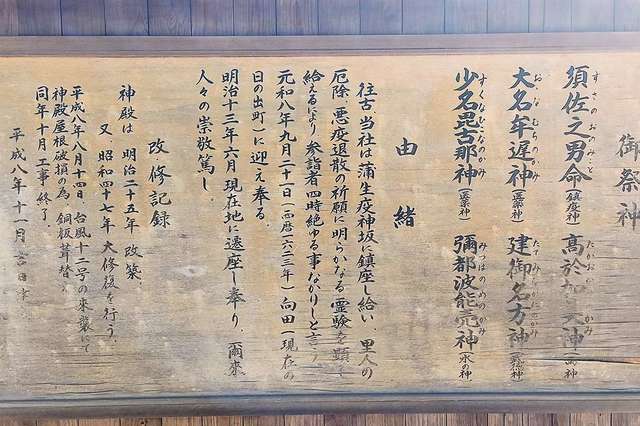 御祭神
須佐之男命 すさのおのみこと (鎮疫神) 高於加 神 たかお かみ (神
大名牟遅神 おおなむちのかみ 建御名方神 たてみ かたかみ
少名毘古那神 すくなひこなのかみ (医薬神) 彌都波能売神 みつはのめのかみ (水の神
由緒
往古当社は蒲生疫神坂に鎮座し給い 里人の
厄除 悪疫退散の祈願に明らかなる霊験を顕
給えるにより 参詣者四時絶ゆる事なかりしと言う
元和八年九月二十一日(西暦一六二二年)向田(現在の
日の出町)に迎え奉る。
明治十三年六月現在地に遷座し奉り、爾来
人々の崇敬篤し。
改修記録
神殿は 明治二十五年 改築、
又、昭和四十七年 大修復を行う、
平成八年八月十四日、台風十二号の来襲にて
神殿屋根破損の為、銅板葺替え
同年十月工事終了。
平成八年十一月吉日